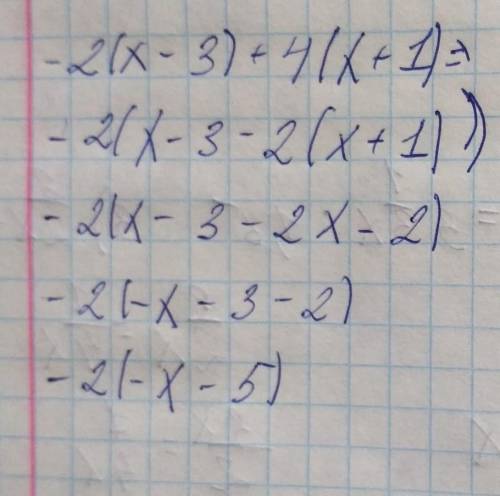 -2(x-3)+4(x+1)=
-2(x-3-2(x+1))
-2(x-3-2x-2)=
-2(-x-3-2)
-2(-x-5)